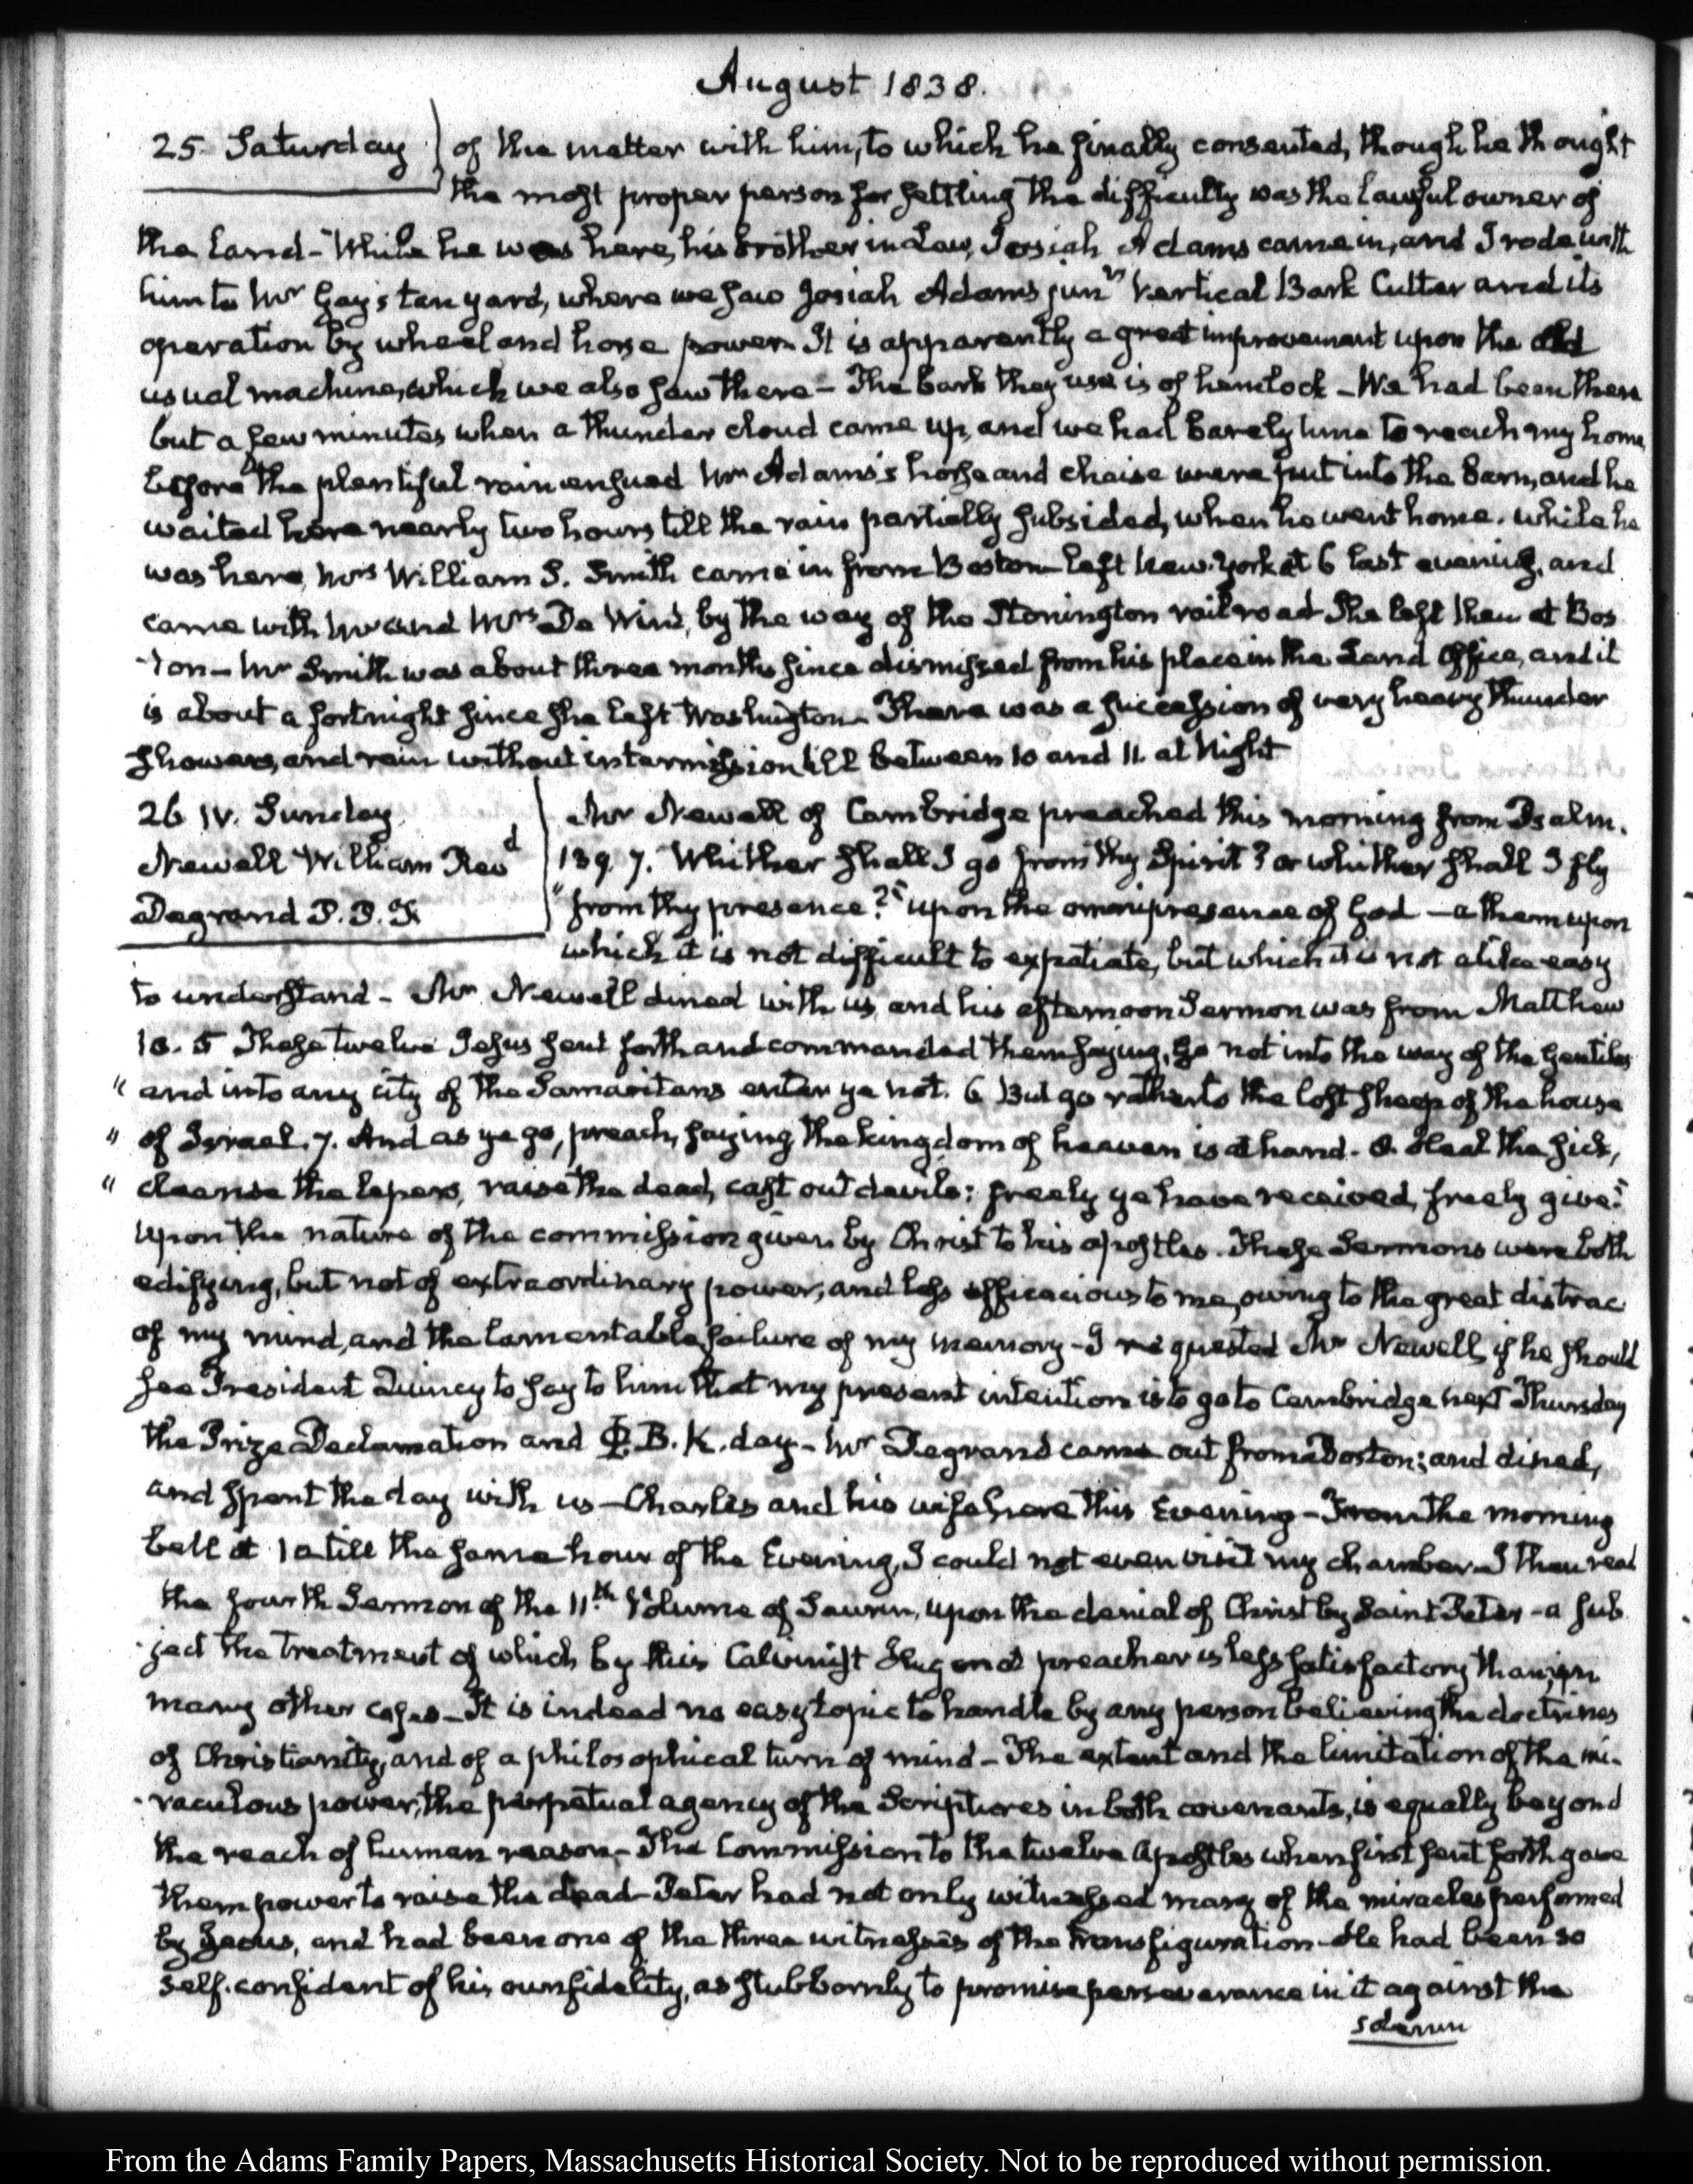 August 1838.
25. Saturday
of the matter with him, to which he finally consented, though he thought
the most proper person for settling the difficulty was the lawful owner of
the land - While he was here, his brother in Law, Josiah Adams came in, and I rode with
him to Mr Gay's tan yard, where we saw Josiah Adams junrs Vertical Bark Cutter and its
operation by wheel and horse power. It is apparently a great improvement upon the old
usual machine, which we also saw there - The bark they use is of hemlock - We had been there
but a few minutes when a thunder cloud came up, and we had barely time to reach my home,
before the plentiful rain ensued Mr Adams's horse and chaise were put into the barn, and he
waited here nearly two hours till the rain partially subsided, when he went home. While he
was here, Mrs William S. Smith came in from Boston left New-York at 6 last evening, and
came with Mr and Mrs De Wint, by the way of the Stonington railroad She left them at Bos
-ton - Mr Smith was about three months since dismissed from his place in the Land Office, and it
is about a fortnight since she left Washington. There was a succession of very heavy thunder
showers, and rain without intermission till between 10 and 11. at Night
26 IV. Sunday
Newell William Revd
Degrand P. P. F.
Mr Newell of Cambridge preached this morning from Psalm.
139. 7. Whither shall I go from thy Spirit? or whither shall I fly
"from thy presence?" upon the omnipresence of God - a theme upon
which it is not difficult to expatiate, but which it is not alike easy
to understand - Mr Newell dined with us, and his afternoon Sermon was from Matthew
10. 5 These twelve Jesus sent forth and commanded them saying, Go not into the way of the Gentiles
" and into any city of the Samaritans enter ye not. 6 But go rather to the lost sheep of the house
" of Israel. 7. And as ye go, preach, saying, the kingdom of heaven is at hand. 8. Heal the sick,
" cleanse the lepers, raise the dead, cast out devils: freely ye have received, freely give."
Upon the nature of the commission given by Christ to his apostles. These Sermons were both
edifying, but not of extraordinary power, and less efficacious to me, owing to the great distrac
of my mind, and the lamentable failure of my memory - I requested Mr Newell, if he should
see President Quincy to say to him that my present intention is to go to Cambridge next Thursday
the Prize Declamation and Φ. B. K. day - Mr Degrand came out from Boston; and dined,
and spent the day with us - Charles and his wife here this Evening - From the morning
bell at 10 till the same hour of the Evening, I could not even visit my chamber - I then read
the fourth Sermon of the 11th Volume of Saurin, upon the denial of Christ by Saint Peter - a sub
-ject the treatment of which by this Calvinist Hugonot preacher is less satisfactory than in
many other cases - It is indeed no easy topic to handle by any person believing the doctrines
of Christianity, and of a philosophical turn of mind - The extent and the limitation of the mi-
-raculous power, the perpetual agency of the Scriptures in both covenants, is equally beyond
the reach of human reason - The Commission to the twelve Apostles when first sent forth gave
them power to raise the dead - Peter had not only witnessed many of the miracles performed
by Jesus, and had been one of the three witnesses of the transfiguration - He had been so
self-confident of his own fidelity, as stubbornly to promise perseverance in it against the
solemn
From the Adams Family Papers, Massachusetts Historical Society. Not to be reproduced without permission.